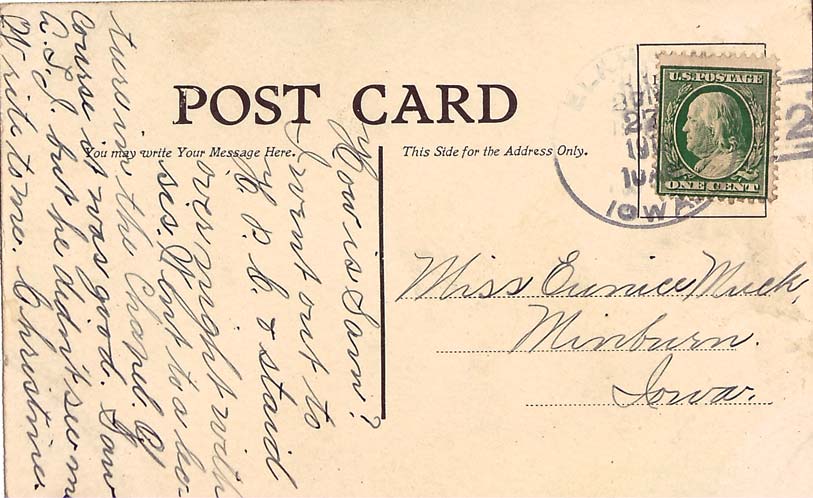 POST CARD
You may write Your Message Here.
This Side for the Address Only.
U.S. POSTAGE
ONE CENT
IOWA
2
Miss Eunice Muck,
Minburn.
Iowa.
How is Sam?
I went out to
H. P. C. & staid
over night with
ses. Went to a lec-
ture in the Chapel. Of
course it was good. Saw
but he didn't see me
Write to me. Christine.